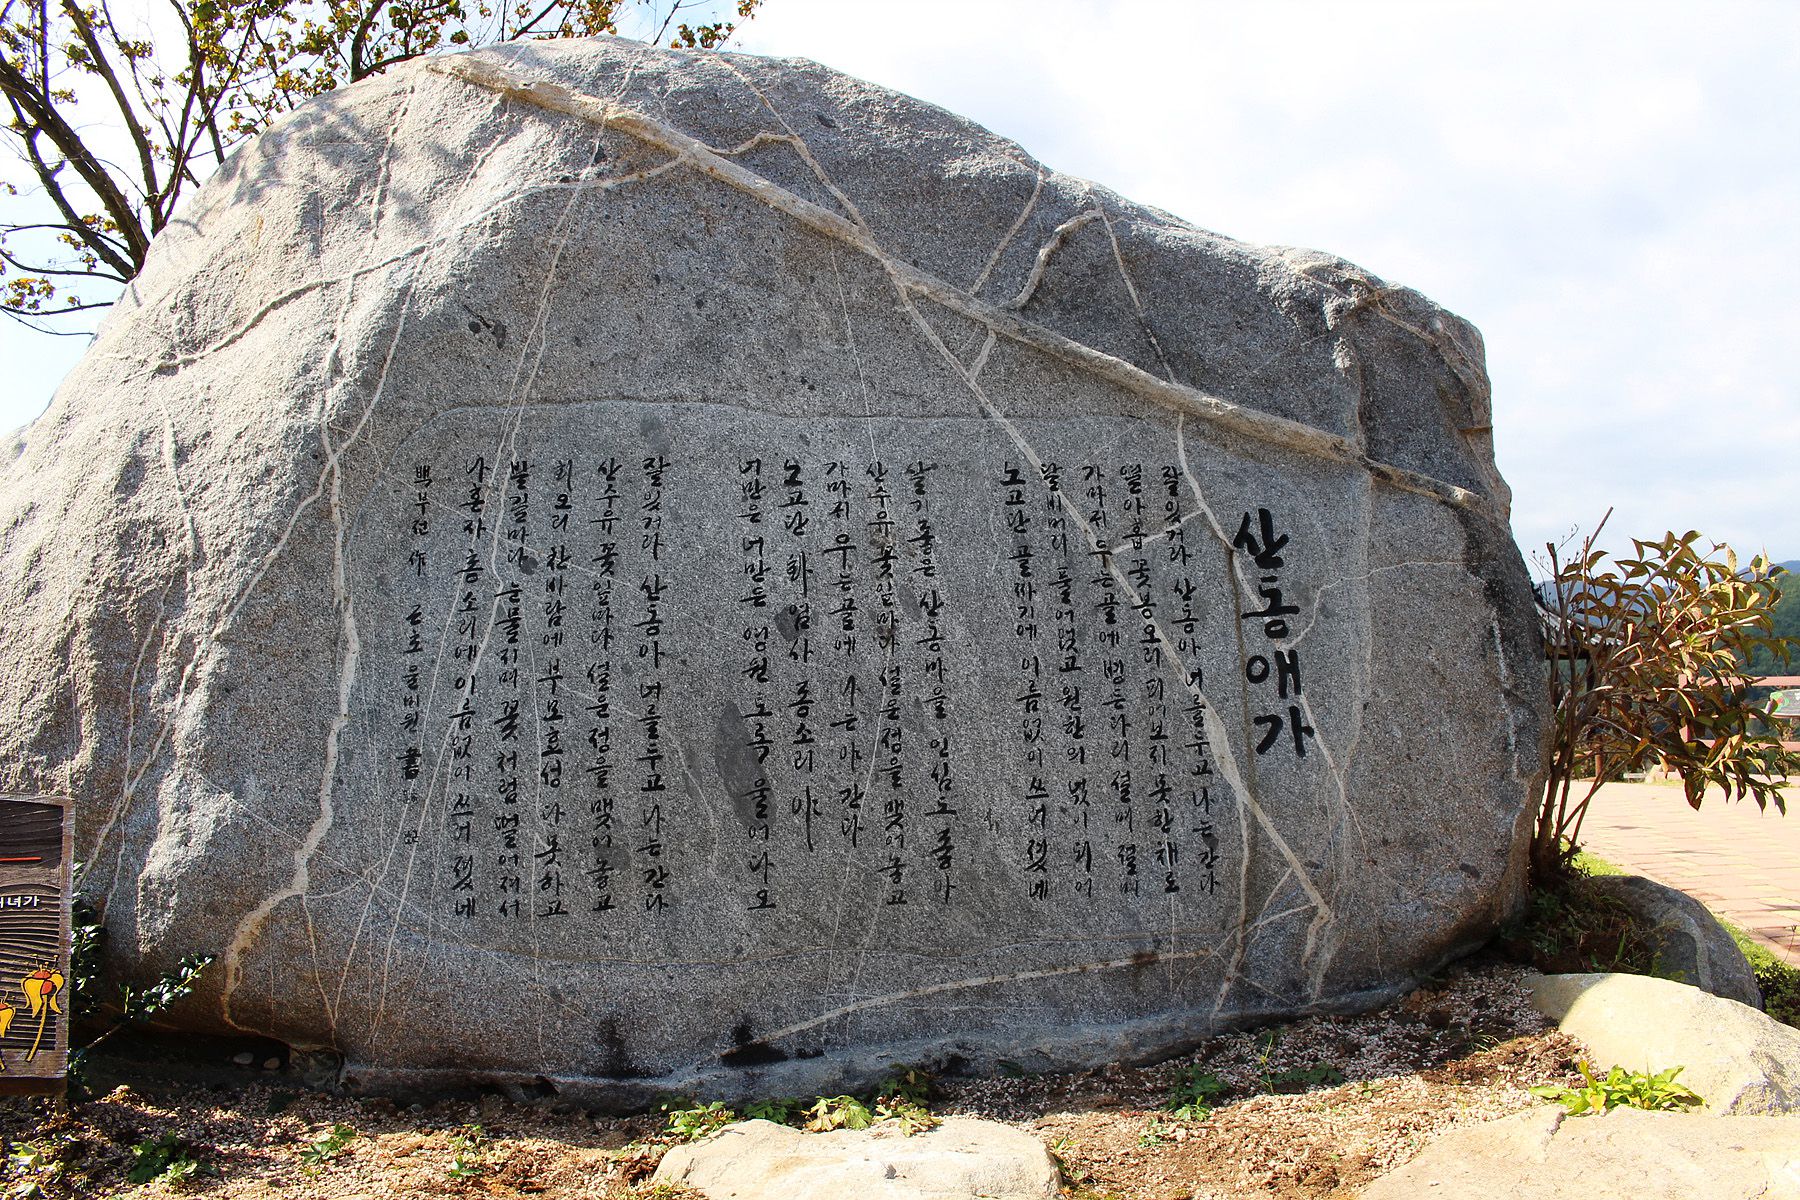 산동애가
잘 있거라 산동아 너를 두고 나는 간다
열아홉 꽃봉오리 피여보지 못한 채로
가마귀 우는 골에 병든 다리 절며 절며
달비머리 풀어 얹고 원한의 넋이 되어
노고단 골짜기에 이름없이 쓰러졌네
살기 좋은 산동마을 인심도 좋아
산수유 꽃잎마다 설운 정을 맺어놓고
가마귀 우는 골에 나는야 간다
노고단 화엄사 종소리야
너만은 너만은 영원토록 울어다오
잘 있거라 산동아 너를 두고 나는 간다
산수유 꽃잎마다 설운 정을 맺어놓고
회오리 찬바람에 부모효성 다 못하고
발길마다 눈물지며 꽃처럼 떨어져서
나 혼자 총소리에 이름없이 쓰러졌네
백부전 作
書
녀가